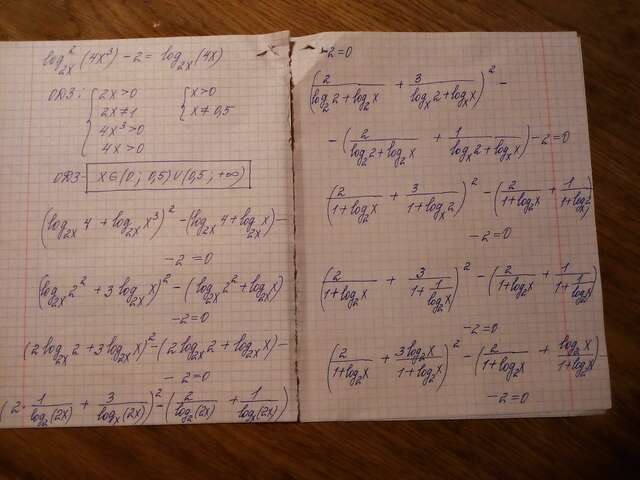 log²₂ₓ(4x³) − 2 = log₂ₓ(4x)
ОДЗ: { 2x>0 { x>0
2x≠1 x≠0,5
4x³>0
4x>0
ОДЗ- x∈(0; 0,5)∪(0,5; +∞)
(log₂ₓ4 + log₂ₓx³)² − (log₂ₓ4 + log₂ₓx) −
− 2 = 0
(log₂ₓ2² + 3log₂ₓx)² − (log₂ₓ2² + log₂ₓx)
− 2 = 0
(2log₂ₓ2 + 3log₂ₓx)² − (2log₂ₓ2 + log₂ₓx) −
− 2 = 0
(2· 1/log₂(2x) + 3/logₓ(2x))² − (2/log₂(2x) + 1/logₓ(2x))
−2=0
(2/(log₂2+log₂x) + 3/(logₓ2+logₓx))² −
− (2/(log₂2+log₂x) + 1/(logₓ2+logₓx)) − 2 = 0
(2/(1+log₂x) + 3/(1+logₓ2))² − (2/(1+log₂x) + 1/(1+logₓ2))
− 2 = 0
(2/(1+log₂x) + 3/(1+1/log₂x))² − (2/(1+log₂x) + 1/(1+1/log₂x))
− 2 = 0
(2/(1+log₂x) + 3log₂x/(1+log₂x))² − (2/(1+log₂x) + log₂x/(1+log₂x)) −
− 2 = 0